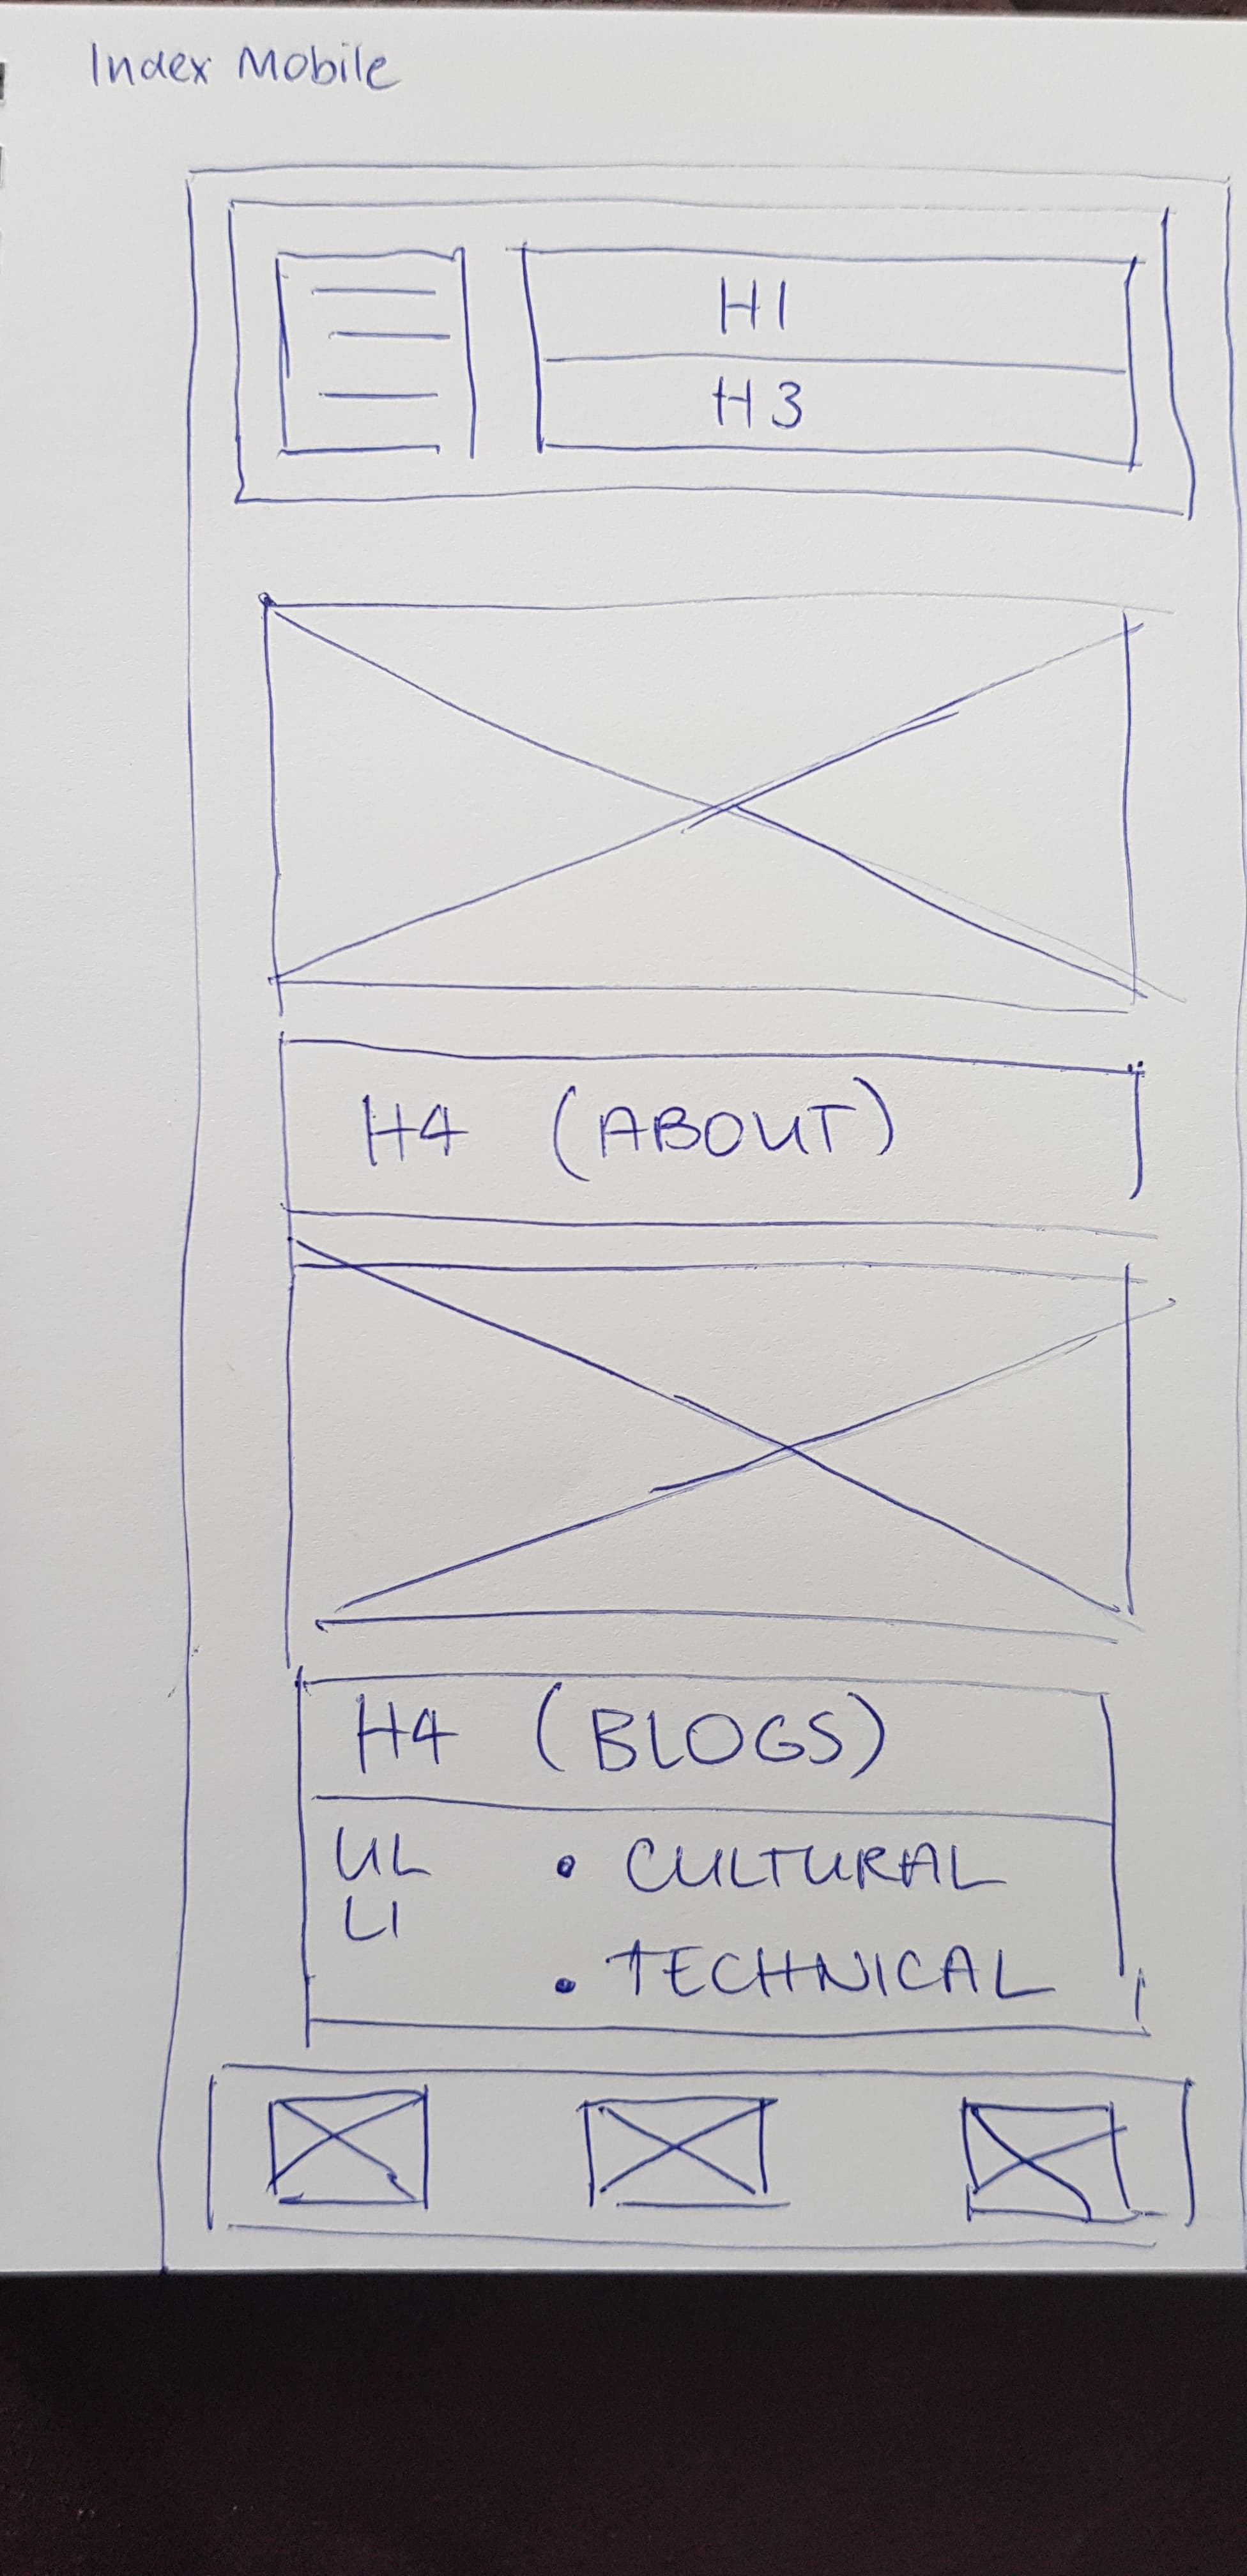 Index Mobile
H1
H3
H4 (ABOUT)
H4 (BLOGS)
UL • CULTURAL
LI
• TECHNICAL